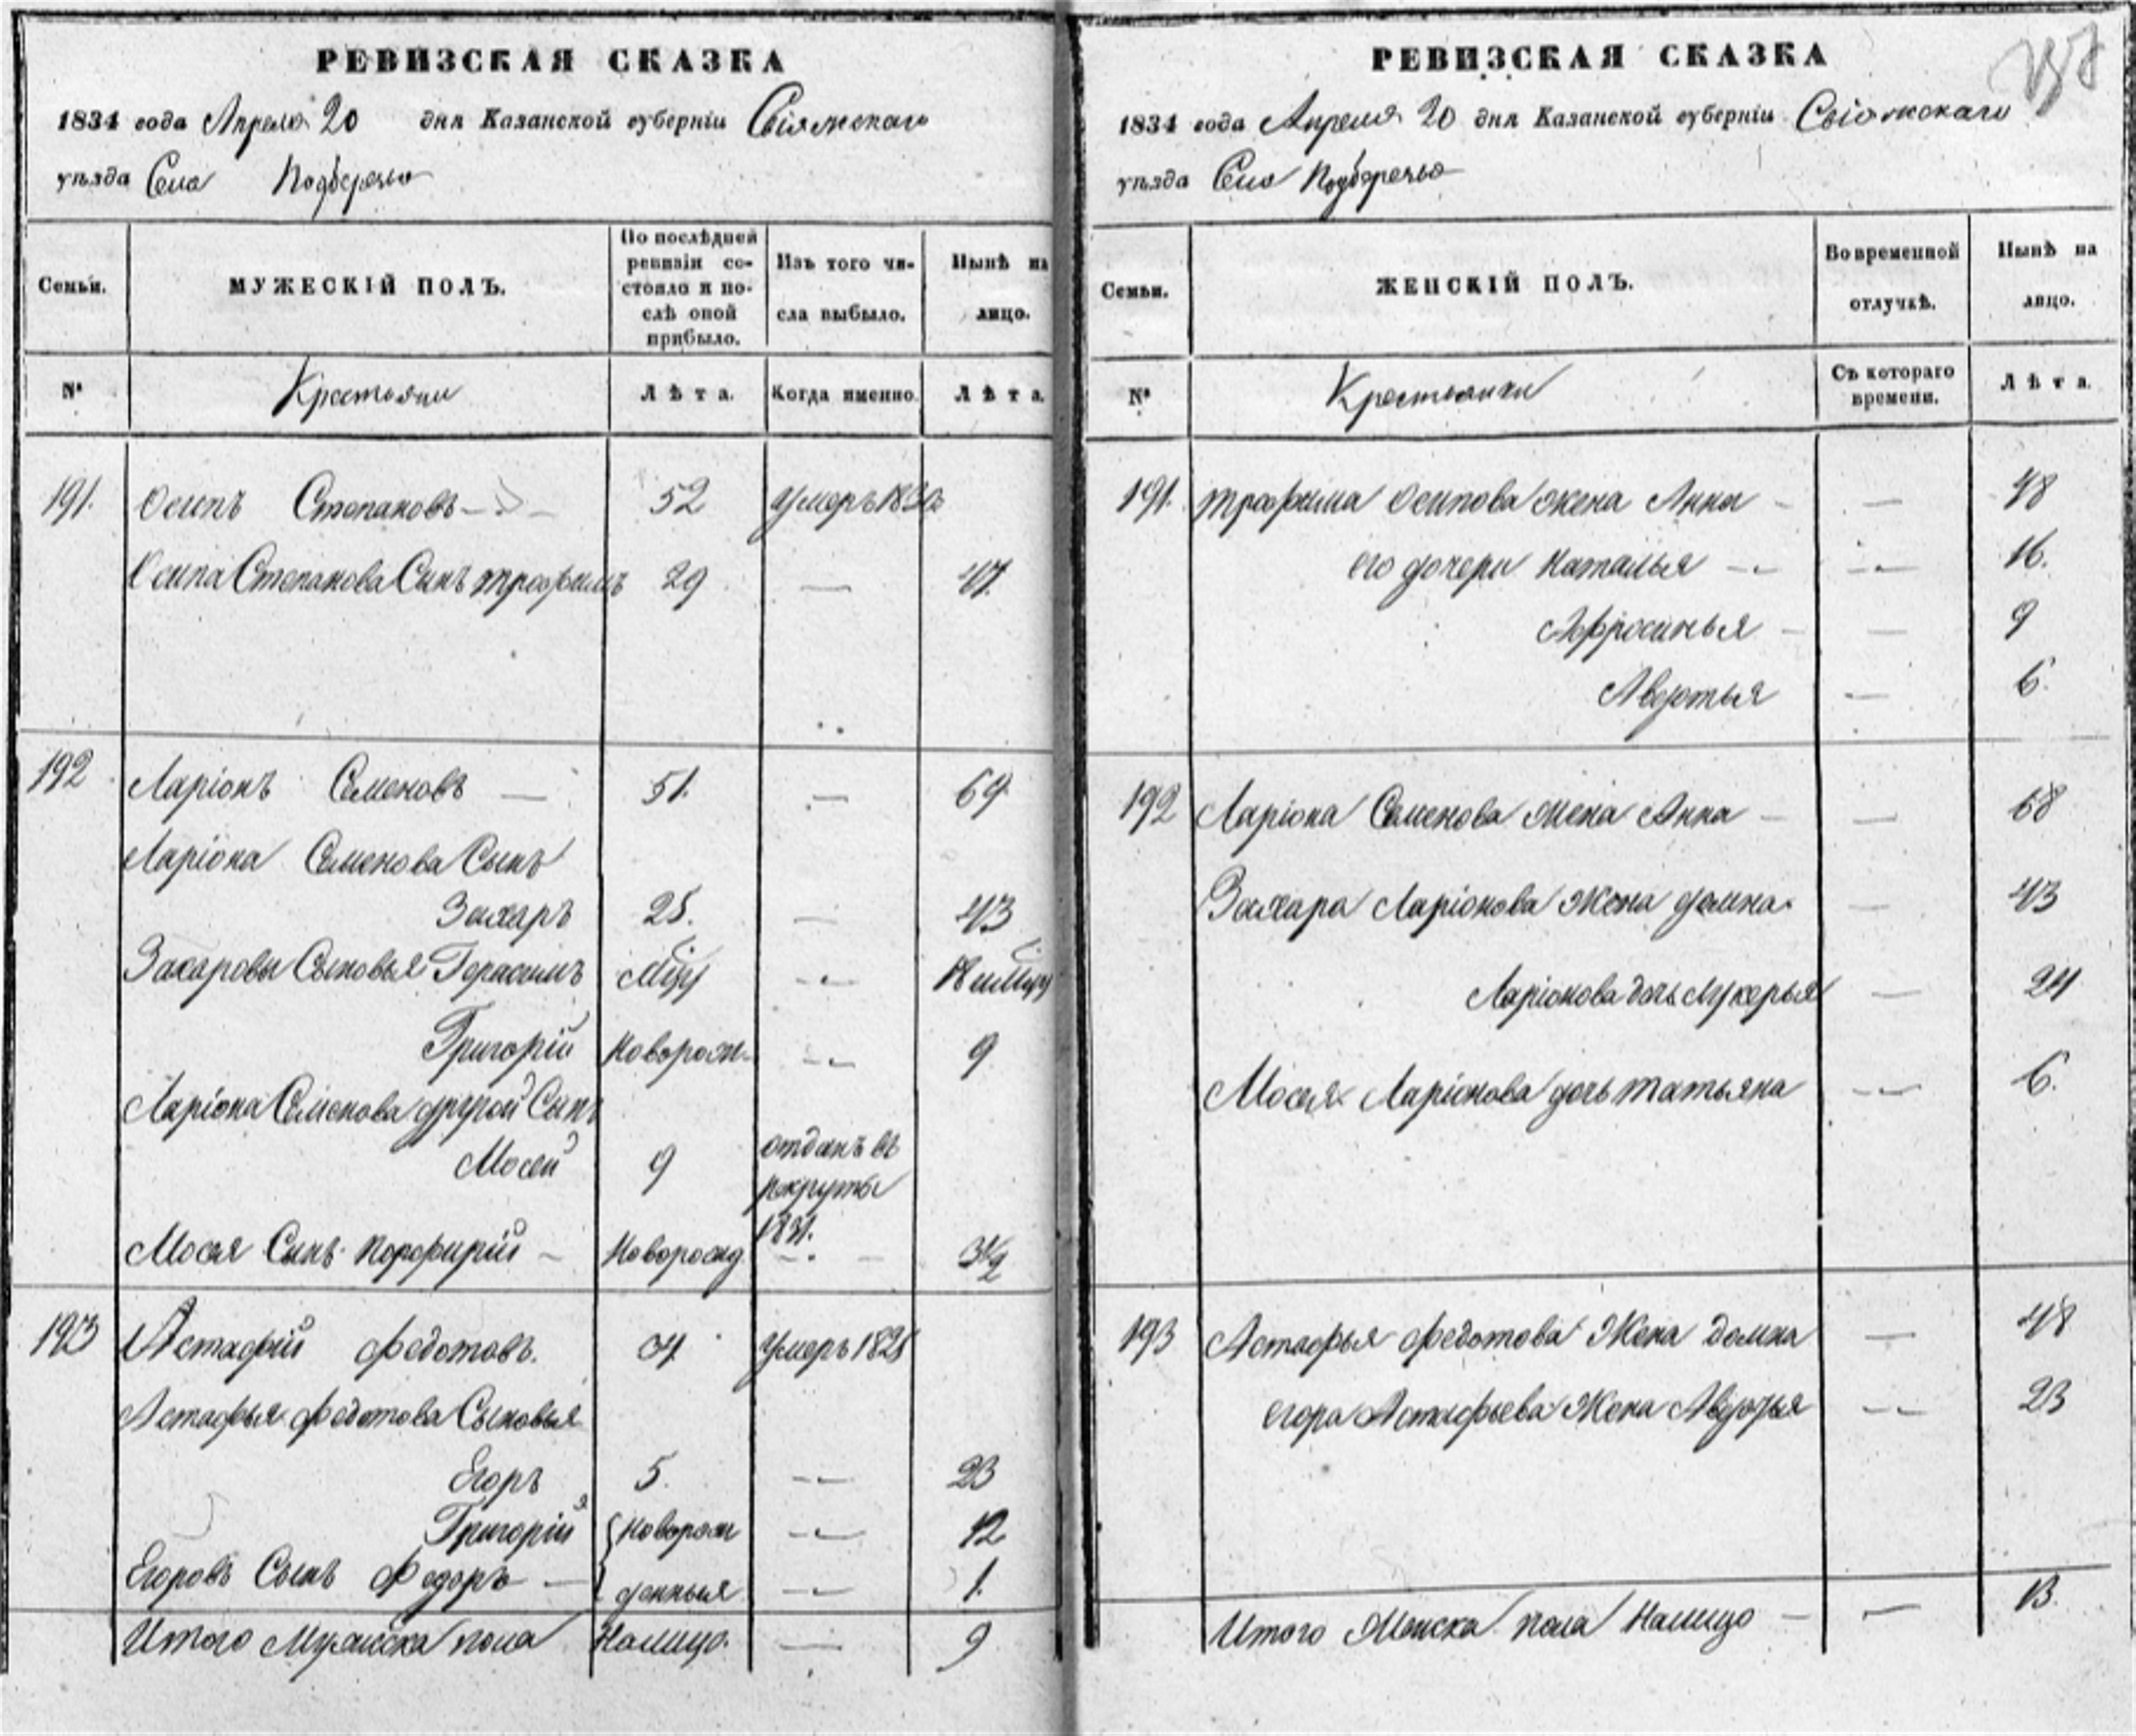 РЕВИЗСКАЯ СКАЗКА
1834 года Апреля 20 дня Казанской губерніи Свіяжскаго
уѣзда Села Подберезья
Семьи.
МУЖЕСКІЙ ПОЛЪ.
По послѣдней ревизіи состояло и послѣ оной прибыло.
Изъ того числа выбыло.
Нынѣ на лицо.
№
Крестьяни
Лѣта.
Когда именно.
Лѣта.
191. Осипъ Степановъ — 52 умеръ 1830
Осипа Степанова Сынъ трофимъ 29 — 47.
192 Ларіонъ Семеновъ — 51. — 69
Ларіона Семенова Сынъ
Захаръ 25. — 43
Захаровы Сыновья Герасимъ —
Григорій новорож. — 9
Ларіона Семенова другой Сынъ
Мосей 9 отданъ въ рекруты 1831.
Мосея Сынъ порфирий — новорожд. — 3½
193 Астафій Федотовъ. умеръ 1828
Астафья Федотова Сыновья
Егоръ 5. — 23
Григорій новорож — 12
Егоровъ Сынъ Федоръ — денныя — 1.
Итого Мужеска пола Налицо. — 9
РЕВИЗСКАЯ СКАЗКА
1834 года Апреля 20 дня Казанской губерніи Свіяжскаго
уѣзда Села Подберезья
Семьи.
ЖЕНСКІЙ ПОЛЪ.
Во временной отлучкѣ.
Нынѣ на лицо.
№
Крестьянки
Съ котораго времени.
Лѣта.
191. трофима Осипова жена Анна — — 48
его дочери Наталья — — 16.
Афросинья — — 9
Авдотья — 6.
192 Ларіона Семенова жена Анна — — 68
Захара Ларіонова Жена домна — 43
Ларіонова дочь Лукерья — 24
Мосея Ларіонова дочь татьяна — 6.
193 Астафья Федотова Жена домна — 48
егора Астафьева Жена Авдотья — 23
Итого Женска пола Налицо — — 13.